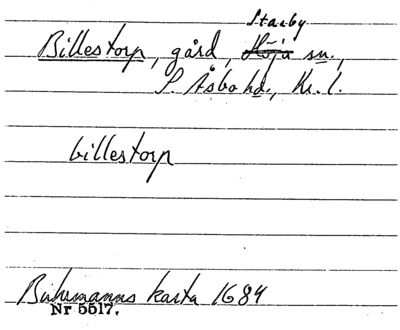 Starby
Billestorp, gård, Höja sn.,
S. Åsbo hd., Kr. l.
billestorp
Buhrmanns karta 1684
Nr 5517.